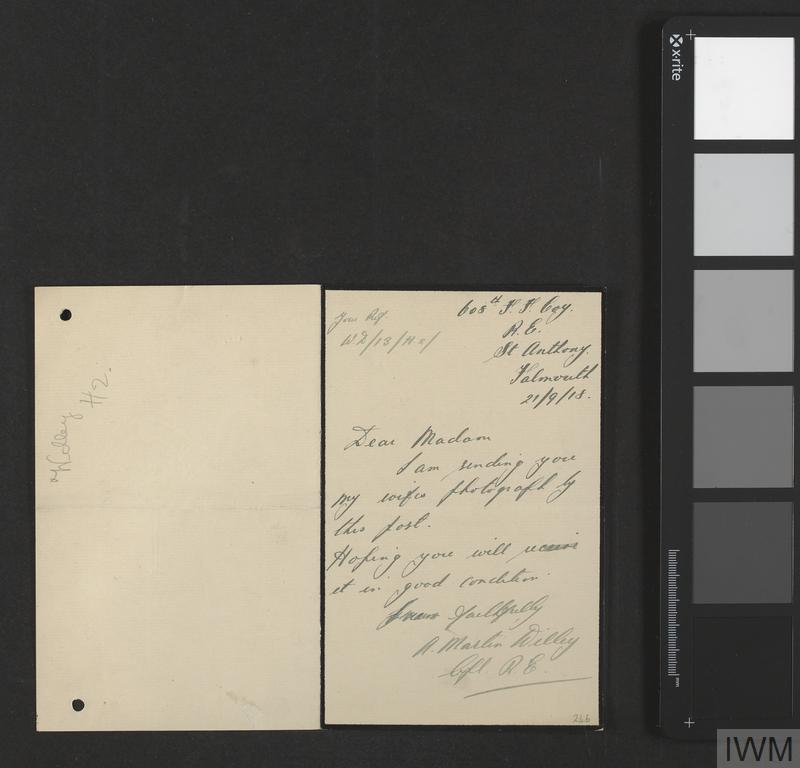 Willey
H2.
Your Ref.
WD/13/H2/
608th F. F. Coy.
R.E.
St Anthony.
Falmouth
21/9/18.
Dear Madam
I am sending you
my wifes photograph by
this post.
Hoping you will receive
it in good condition
Yours faithfully
A. Martin Willey
Cpl. R.E.
266
x-rite
mm
IWM